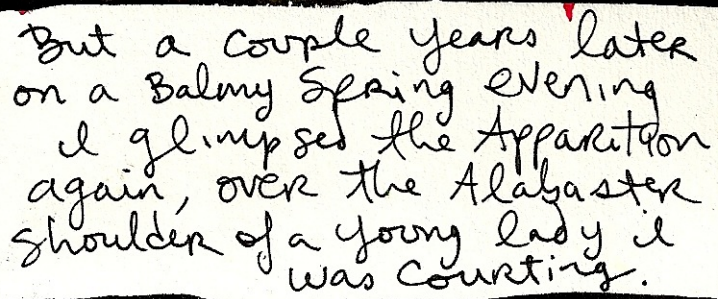 But a couple years later
on a Balmy Spring evening
I glimpsed the Apparition
again, over the Alabaster
shoulder of a young lady I
was courting.